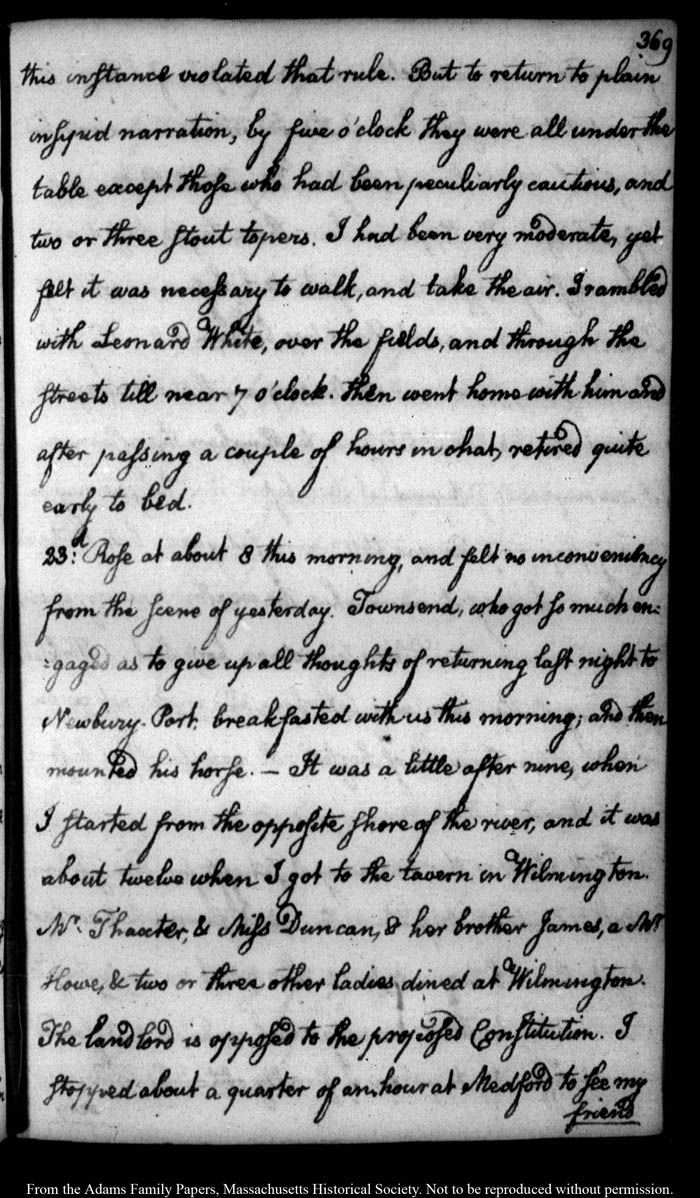 369
this instance violated that rule. But to return to plain
insipid narration, by five o'clock they were all under the
table except those who had been peculiarly cautious, and
two or three stout topers. I had been very moderate, yet
felt it was necessary to walk, and take the air. I rambled
with Leonard White, over the fields, and through the
streets till near 7 o'clock. then went home with him and
after passing a couple of hours in chat, retired quite
early to bed.
23.d Rose at about 8 this morning, and felt no inconveniency
from the scene of yesterday. Townsend, who got so much en=
=gaged as to give up all thoughts of returning last night to
Newbury-Port, breakfasted with us this morning; and then
mounted his horse. — It was a little after nine, when
I started from the opposite shore of the river, and it was
about twelve when I got to the tavern in Wilmington.
Mr. Thaxter, & Miss Duncan, & her brother James, a Mr.
Howe, & two or three other ladies dined at Wilmington.
The landlord is opposed to the proposed Constitution. I
stopped about a quarter of an hour at Medford to see my
friend
From the Adams Family Papers, Massachusetts Historical Society. Not to be reproduced without permission.